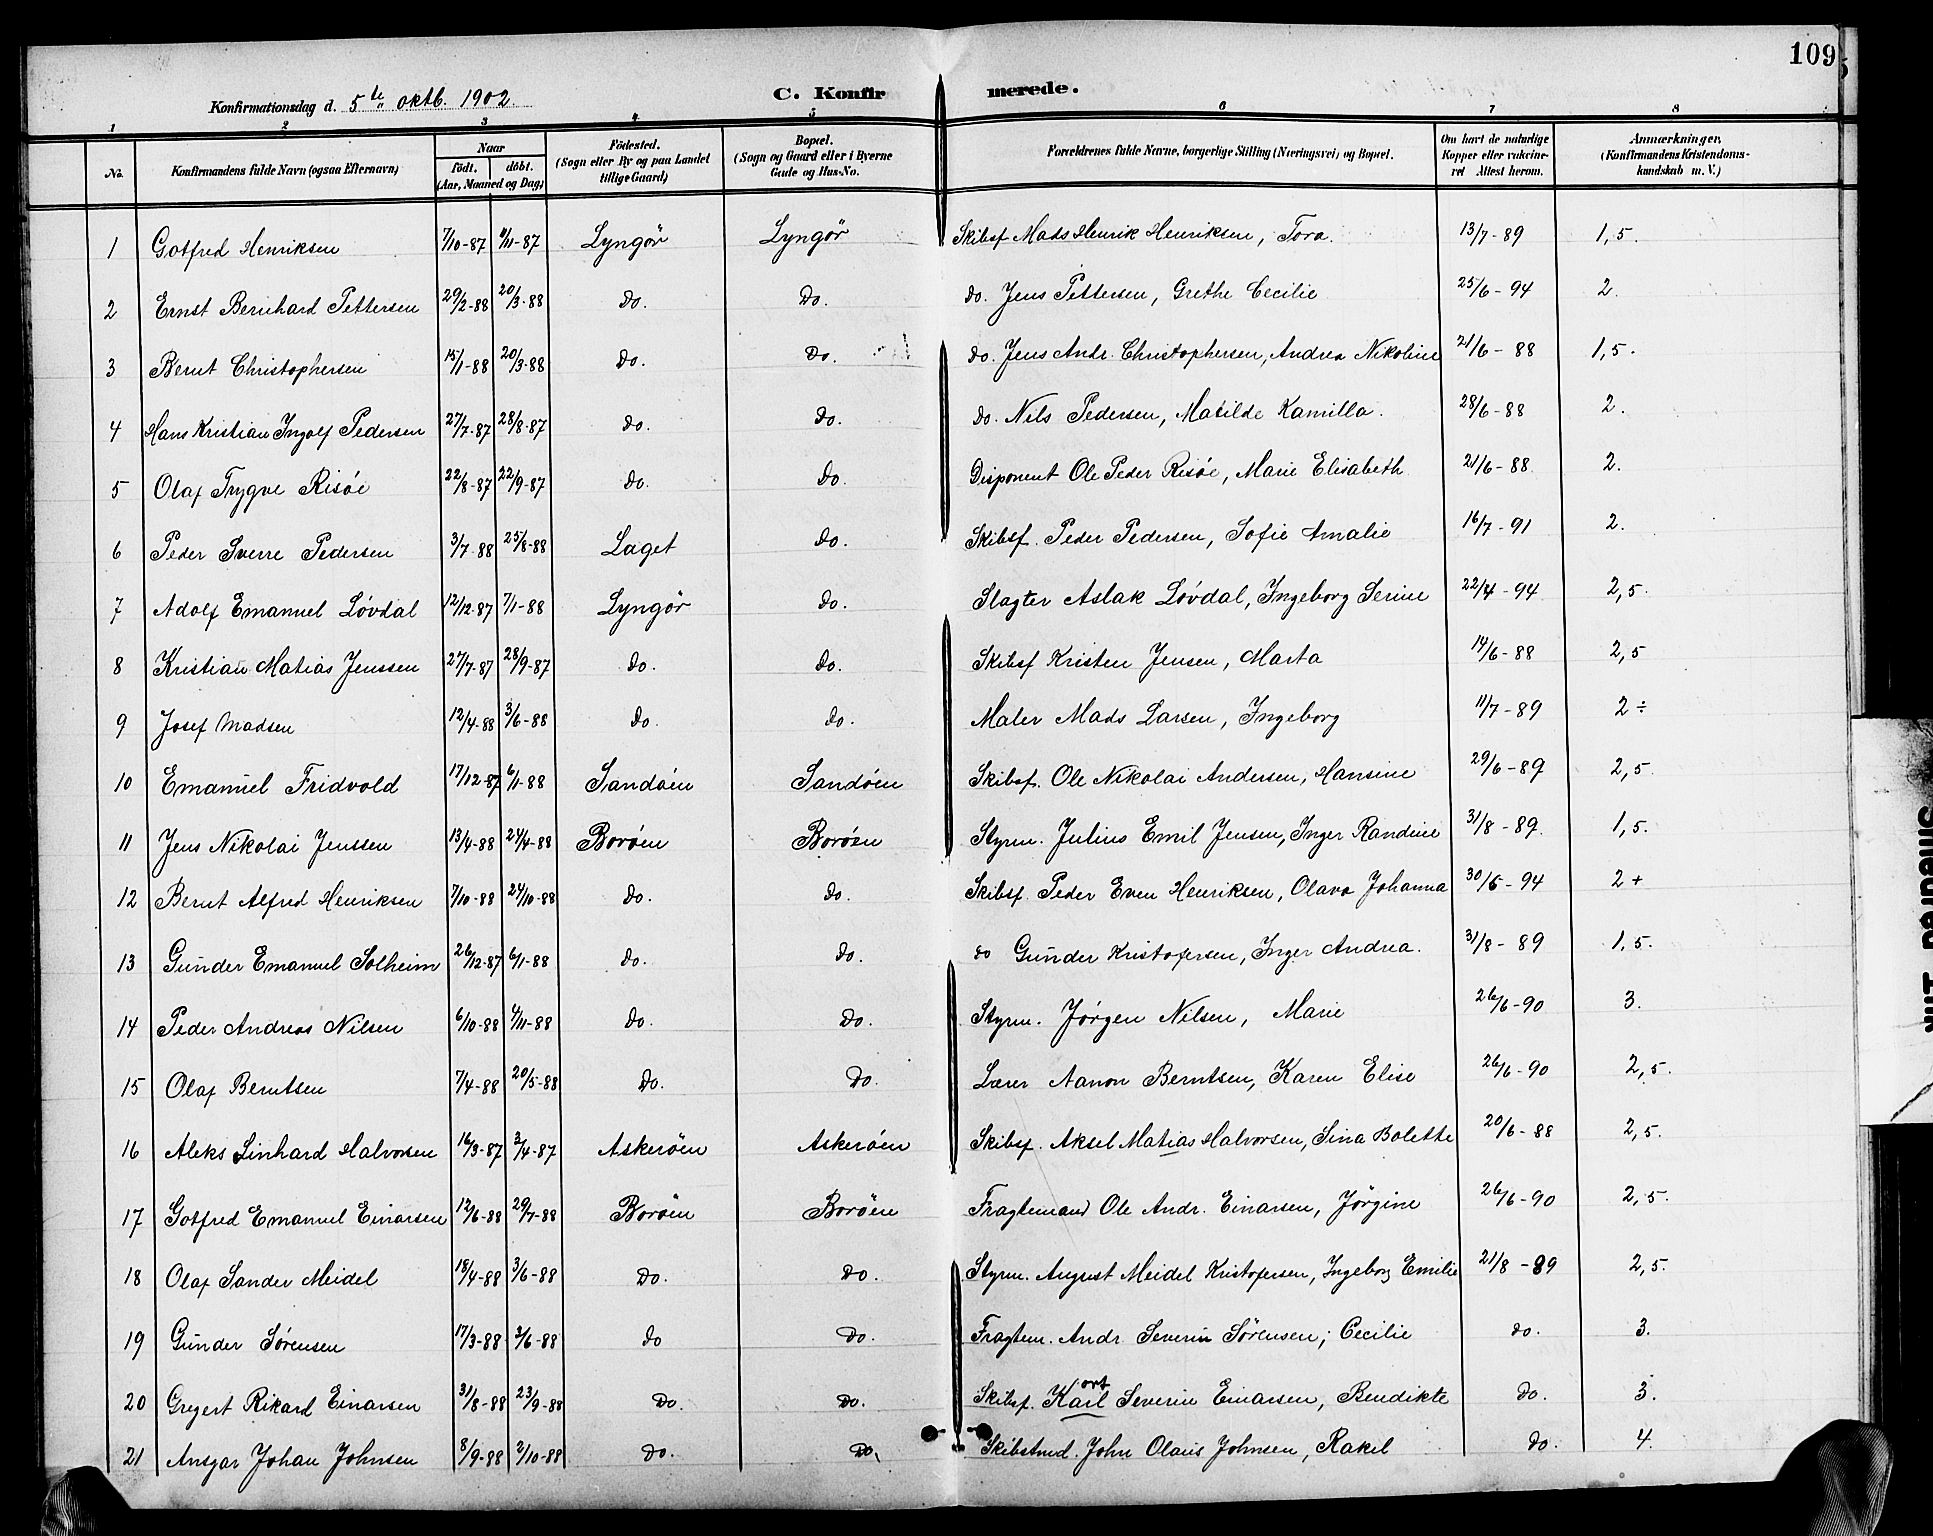 109
Konfirmationsdag d. 5te oktb. 1902. C. Konfirmerede.
1 2 3 4 5 6 7 8
No. Konfirmandens fulde Navn (ogsaa Efternavn) Naar födt. döbt. (Aar, Maaned og Dag) Födested. (Sogn eller By og paa Landet tillige Gaard) Bopæl. (Sogn og Gaard eller i Byerne Gade og Hus-No. Forældrenes fulde Navne, borgerlige Stilling (Næringsvei) og Bopæl. Om havt de naturlige Kopper eller vakcineret Attest herom. Anmærkninger, (Konfirmandens Kristendomskundskab m. V.)
1 Gotfred Henriksen 7/10-87 6/11-87 Lyngör Lyngör Skibsf Mads Henrik Henriksen, Tora. 13/7-89 1,5.
2 Ernst Bernhard Pettersen 29/2-88 20/3-88 do. do. do. Jens Pettersen, Grethe Cecilie 25/6-94 2.
3 Bernt Christophersen 15/1-88 20/3-88 do. do. do. Jens Andr. Christophersen, Andrea Nikoline 21/6-88 1,5.
4 Hans Kristian Ingolf Pedersen 27/7-87 28/8-87 do. do. do. Nils Pedersen, Matilde Kamilla. 28/6-88 2.
5 Olaf Trygve Risöe 22/8-87 22/9-87 do. do. Disponent Ole Peder Risöe, Marie Elisabeth 21/6-88 2.
6 Peder Sverre Pedersen 3/7-88 25/8-88 Laget do. Skibsf. Peder Pedersen, Sofie Amalie 16/7-91 2.
7 Adolf Emanuel Lövdal 12/12-87 7/1-88 Lyngör do. Slagter Aslak Lövdal, Ingeborg Serine 22/4-94 2,5.
8 Kristian Matias Jenssen 27/7-87 28/9-87 do. do. Skibsf Kristen Jensen, Marta 14/6-88 2,5
9 Josef Madsen 12/4-88 3/6-88 do. do. Maler Mads Larsen, Ingeborg 11/7-89 2÷
10 Emanuel Fridvold 17/12-87 6/1-88 Sandöen Sandöen Skibsf. Ole Nikolai Andersen, Hansine 29/6-89 2,5.
11 Jens Nikolai Jenssen 13/4-88 24/4-88 Boröen Boröen Styrm. Julius Emil Jensen, Inger Randine 31/8-89. 1,5.
12 Bernt Alfred Henriksen 7/10-88 24/10-88 do. do. Skibsf. Peder Even Henriksen, Olava Johanna 30/5-94 2+
13 Gunder Emanuel Solheim 26/12-87 6/1-88 do. do. do Gunder Kristofersen, Inger Andrea. 31/8-89 1,5.
14 Peder Andreas Nilsen 6/10-88 4/11-88 do. do. Styrm. Jörgen Nilsen, Marie 26/6-90 3.
15 Olaf Berntsen 7/4-88 20/5-88 do. do. Lærer Aanon Berntsen, Karen Elise 26/6-90 2,5.
16 Aleks Linhard Halvorsen 16/3-87 3/4-87 Askeröen Askeröen Skibsf. Aksel Matias Halvorsen, Sina Bolette 20/6-88 2,5.
17 Gotfred Emanuel Einarsen 12/6-88 29/7-88 Boröen Boröen Fragtemand Ole Andr. Einarsen, Jörgine 26/6-90 2,5.
18 Olaf Sander Meidel 18/4-88 3/6-88 do. do. Styrm. August Meidel Kristofersen, Ingeborg Emilie 21/8-89 2,5.
19 Gunder Sörensen 17/3-88 3/6-88 do do. Fragtem. Andr. Severin Sörensen, Cecilie do. 3.
ort
20 Gregert Rikard Einarsen 31/8-88 23/9-88 do. do. Skibsf. Karl Severin Einarsen, Bendikte do. 3.
21 Ansgar Johan Johnsen 8/9-88 2/10-88 do. do. Skibstmd. John Olaus Johnsen, Rakel do. 4.